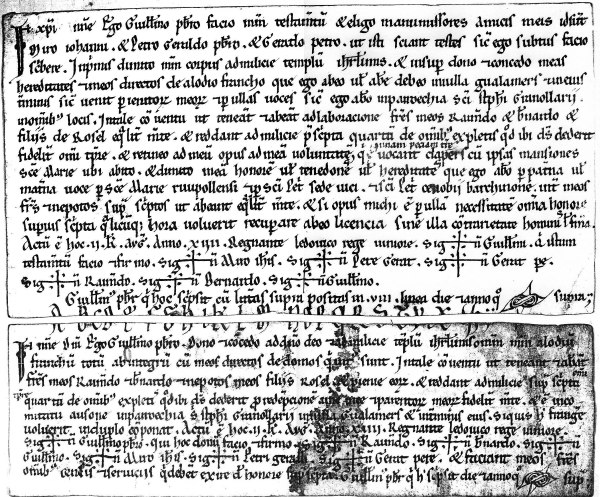 In xpi nne Ego Guillmo pbro facio mm testamtu & eligo manumissores amicis meis idsunt
Miro iohanni. & Petro Geraldo pbro. & Gerardo petro. ut isti sciant testes sic ego subtus facio
scbere. Inpmis dimito mm corpus admilicie templu ihrlmis. & insup dono & concedo meas
hereditates & meos directos de alodio francho que ego abeo ul abe debeo invilla gualamers & ineius
mnus sic venit pienitore meor & p ullas voces sic ego abeo inparrochia sci stphi Granollarii
inomib locis. Intale conventu ut teneat & abeat adlaboracione frs meos Raimudo & bnardo &
filiis de Rosel eqlit mte. & reddant admilicie pscpta quarta de omib expletis q ibi ds dederit
fidelit omi tpre. & retineo ad meu opus ad mea volutate que vocant clapers cu ipsas mansiones
sce Marie ubi abito. & dimito mea honore ul tenedone ul hereditate que ego abeo p patrna ul
matrna voce p sce Marie rivipollensi & p sci Pet sede vici. & sci Pet cenobii barchinone. ut meos
frs & nepotos sup scptos ut abeant eqlit mte. & si opus michi e p ulla necessitate omia honore
supius scpta qlicuq hora voluerit recupare abeo licencia sine illa cotrarietate hominu ul femina.
Actu e hoc .ii. K. Ave. Anno .xiiii. Regnante ledovico rege iuniore. Sig+n Guillmi. q istum
testamtu facio & firmo. Sig+n Miro ihis. Sig+n Pere Gerat. Sig+n Gerat pe.
Sig+n Raimudo. Sig+n Bernardo. Sig+n Guillmo.
Guillm pbr q hoc scpsit cu literas supra positas in .viii. linea die & anno q supra
In nne dni Ego Guillmo pbro. Dono & cocedo addno deo & admilicie teplu ihrlmis omm mm alodiu
franchu totu abintegru cu meos directos de domos q ibi sunt. Intale coventu ut teneant & abeant
frs meos Raimdo & bnardo & nepotos meos filiis Rosel & pienie eor. & reddant admilicie sup scpta
quarta de omib expleti q ibi ds dederit p redepcione aie mee & parentor meor fidelit mte. & e inco
mitatu ausone inparrochia s stphi Granollarii invilla Gualamers & intminis eius. Siquis h frange
voluerit induplo coponat. Actu e hoc .ii. K. Ave. Anno .xxiii. Regnante ledovico rege iuniore.
Sig+n Guillmo pbri. qui hoc donu facio & firmo. Sig+n Raimdo. Sig+n bnardo. Sig+n
Guillmo. Sig+n Miro ihis. Sig+n Petri gerall. Sig+n Gerat pere. & faciant meos frs
omib censis & serviciis q debet exire d honore sup scpta. Guillm pbr q h scpsit die & anno q sup